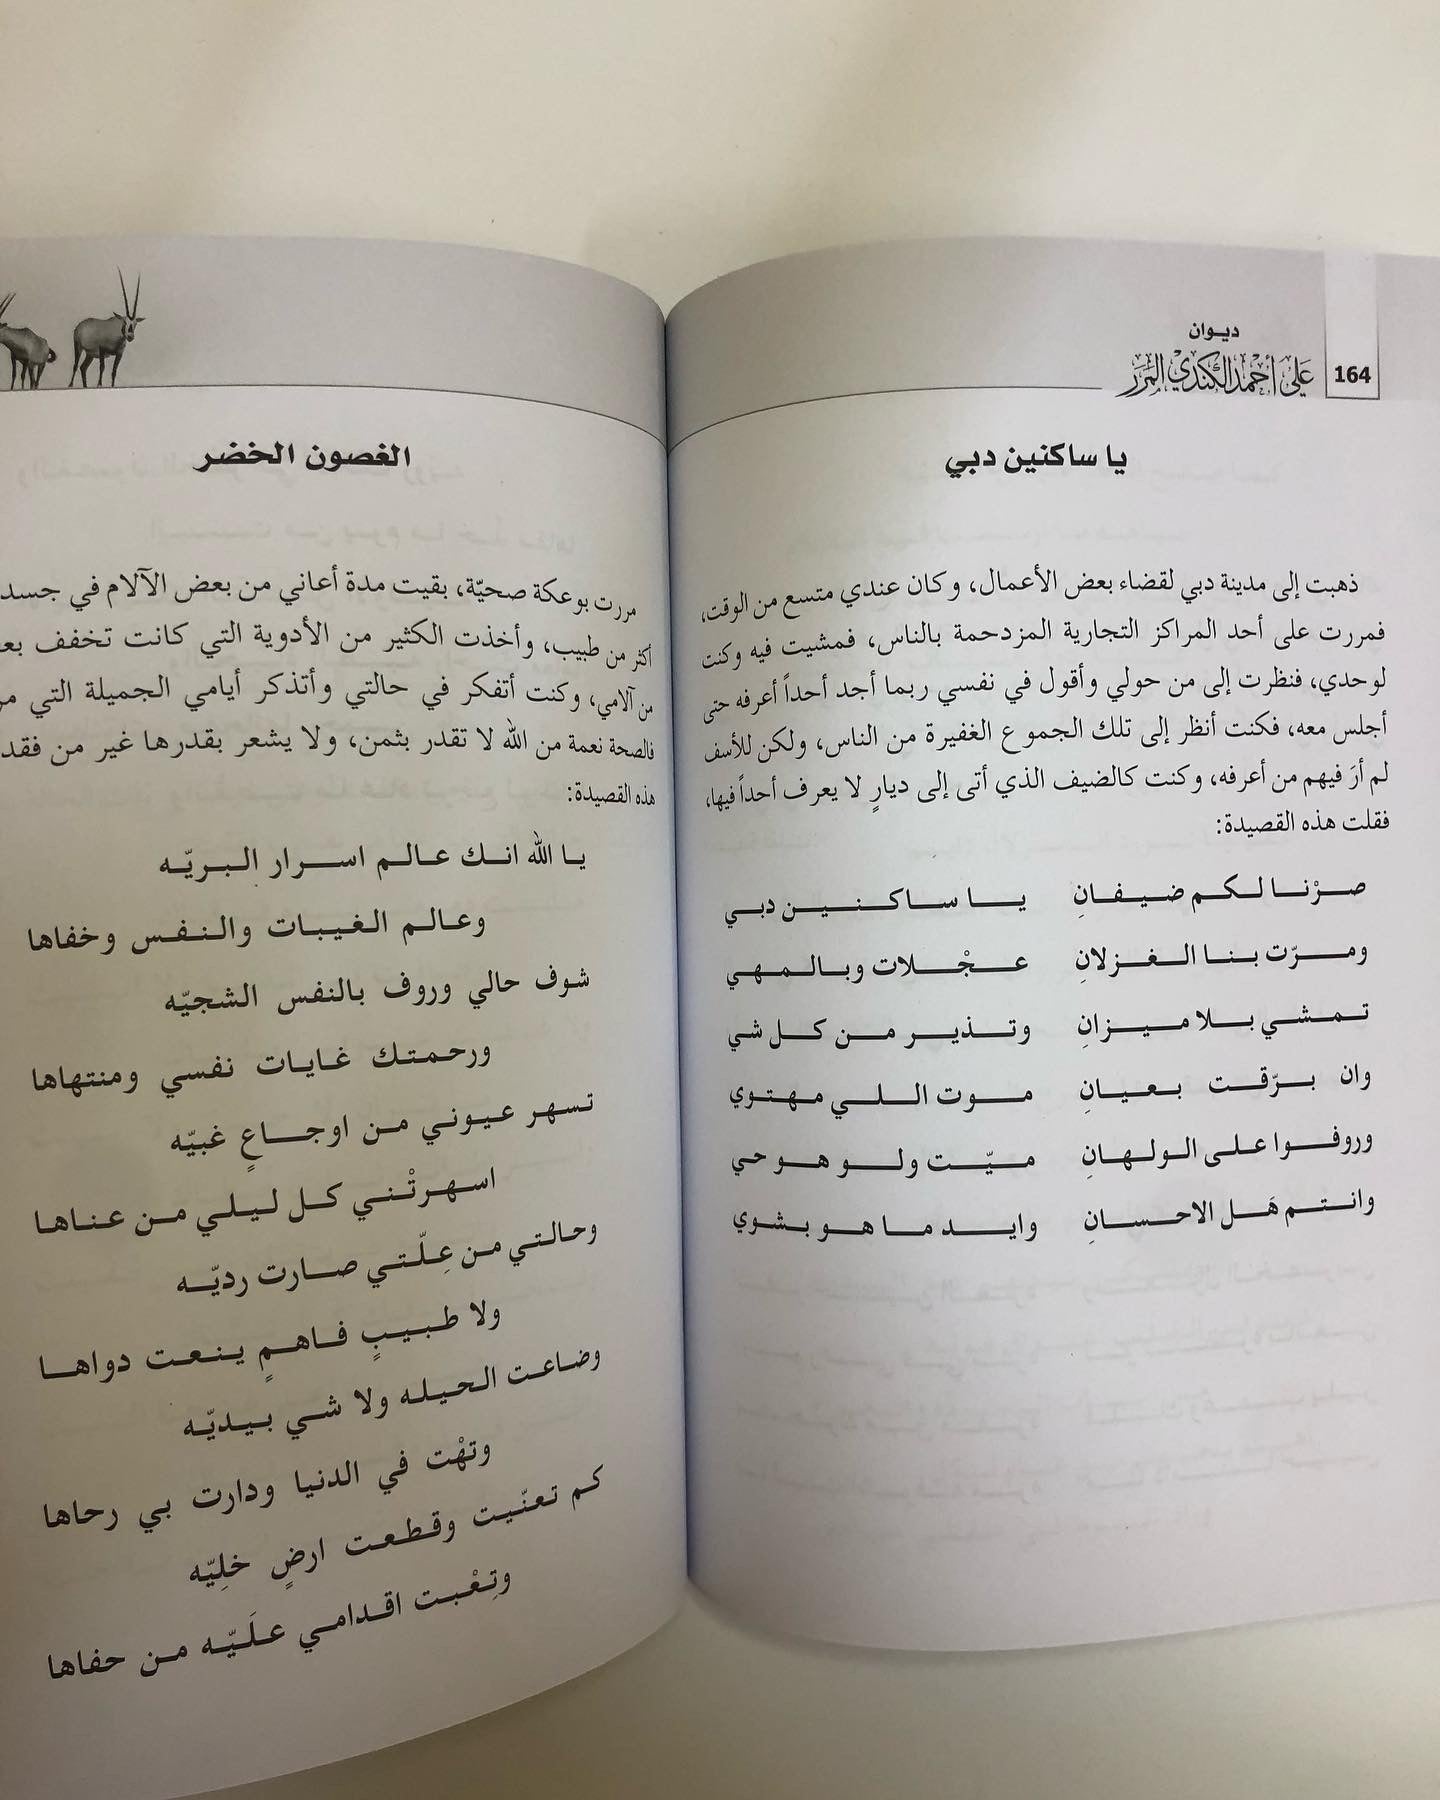 164
ديوان
علي أحمد الكندي المرر
يا ساكنين دبي
ذهبت إلى مدينة دبي لقضاء بعض الأعمال، وكان عندي متسع من الوقت،
فمررت على أحد المراكز التجارية المزدحمة بالناس، فمشيت فيه وكنت
لوحدي، فنظرت إلى من حولي وأقول في نفسي ربما أجد أحداً أعرفه حتى
أجلس معه، فكنت أنظر إلى تلك الجموع الغفيرة من الناس، ولكن للأسف
لم أرَ فيهم من أعرفه، وكنت كالضيف الذي أتى إلى ديارٍ لا يعرف أحداً فيها،
فقلت هذه القصيدة:
صرْنا لكم ضيفانِ يا ساكنين دبي
ومرّت بنا الغزلانِ عجْلات وبالمهي
تمشي بلا ميزانِ وتذير من كل شي
وان برّقت بعيانِ موت اللي مهتوي
وروفوا على الولهانِ ميّت ولو هو حي
وانتم هَل الاحسانِ وايد ما هو بشوي
الغصون الخضر
مررت بوعكة صحيّة، بقيت مدة أعاني من بعض الآلام في جسد
أكثر من طبيب، وأخذت الكثير من الأدوية التي كانت تخفف
من آلامي، وكنت أتفكر في حالتي وأتذكر أيامي الجميلة التي
فالصحة نعمة من الله لا تقدر بثمن، ولا يشعر بقدرها غير من
هذه القصيدة:
يا الله انك عالم اسرار البريّه
وعالم الغيبات والنفس وخفاها
شوف حالي وروف بالنفس الشجيّه
ورحمتك غايات نفسي ومنتهاها
تسهر عيوني من اوجاعٍ غبيّه
اسهرتْني كل ليلي من عناها
وحالتي من عِلّتي صارت رديّه
ولا طبيبٍ فاهمٍ ينعت دواها
وضاعت الحيله ولا شي بيديّه
وتهْت في الدنيا ودارت بي رحاها
كم تعنّيت وقطعت ارضٍ خلِيّه
وتِعْبت اقدامي علَيّه من حفاها